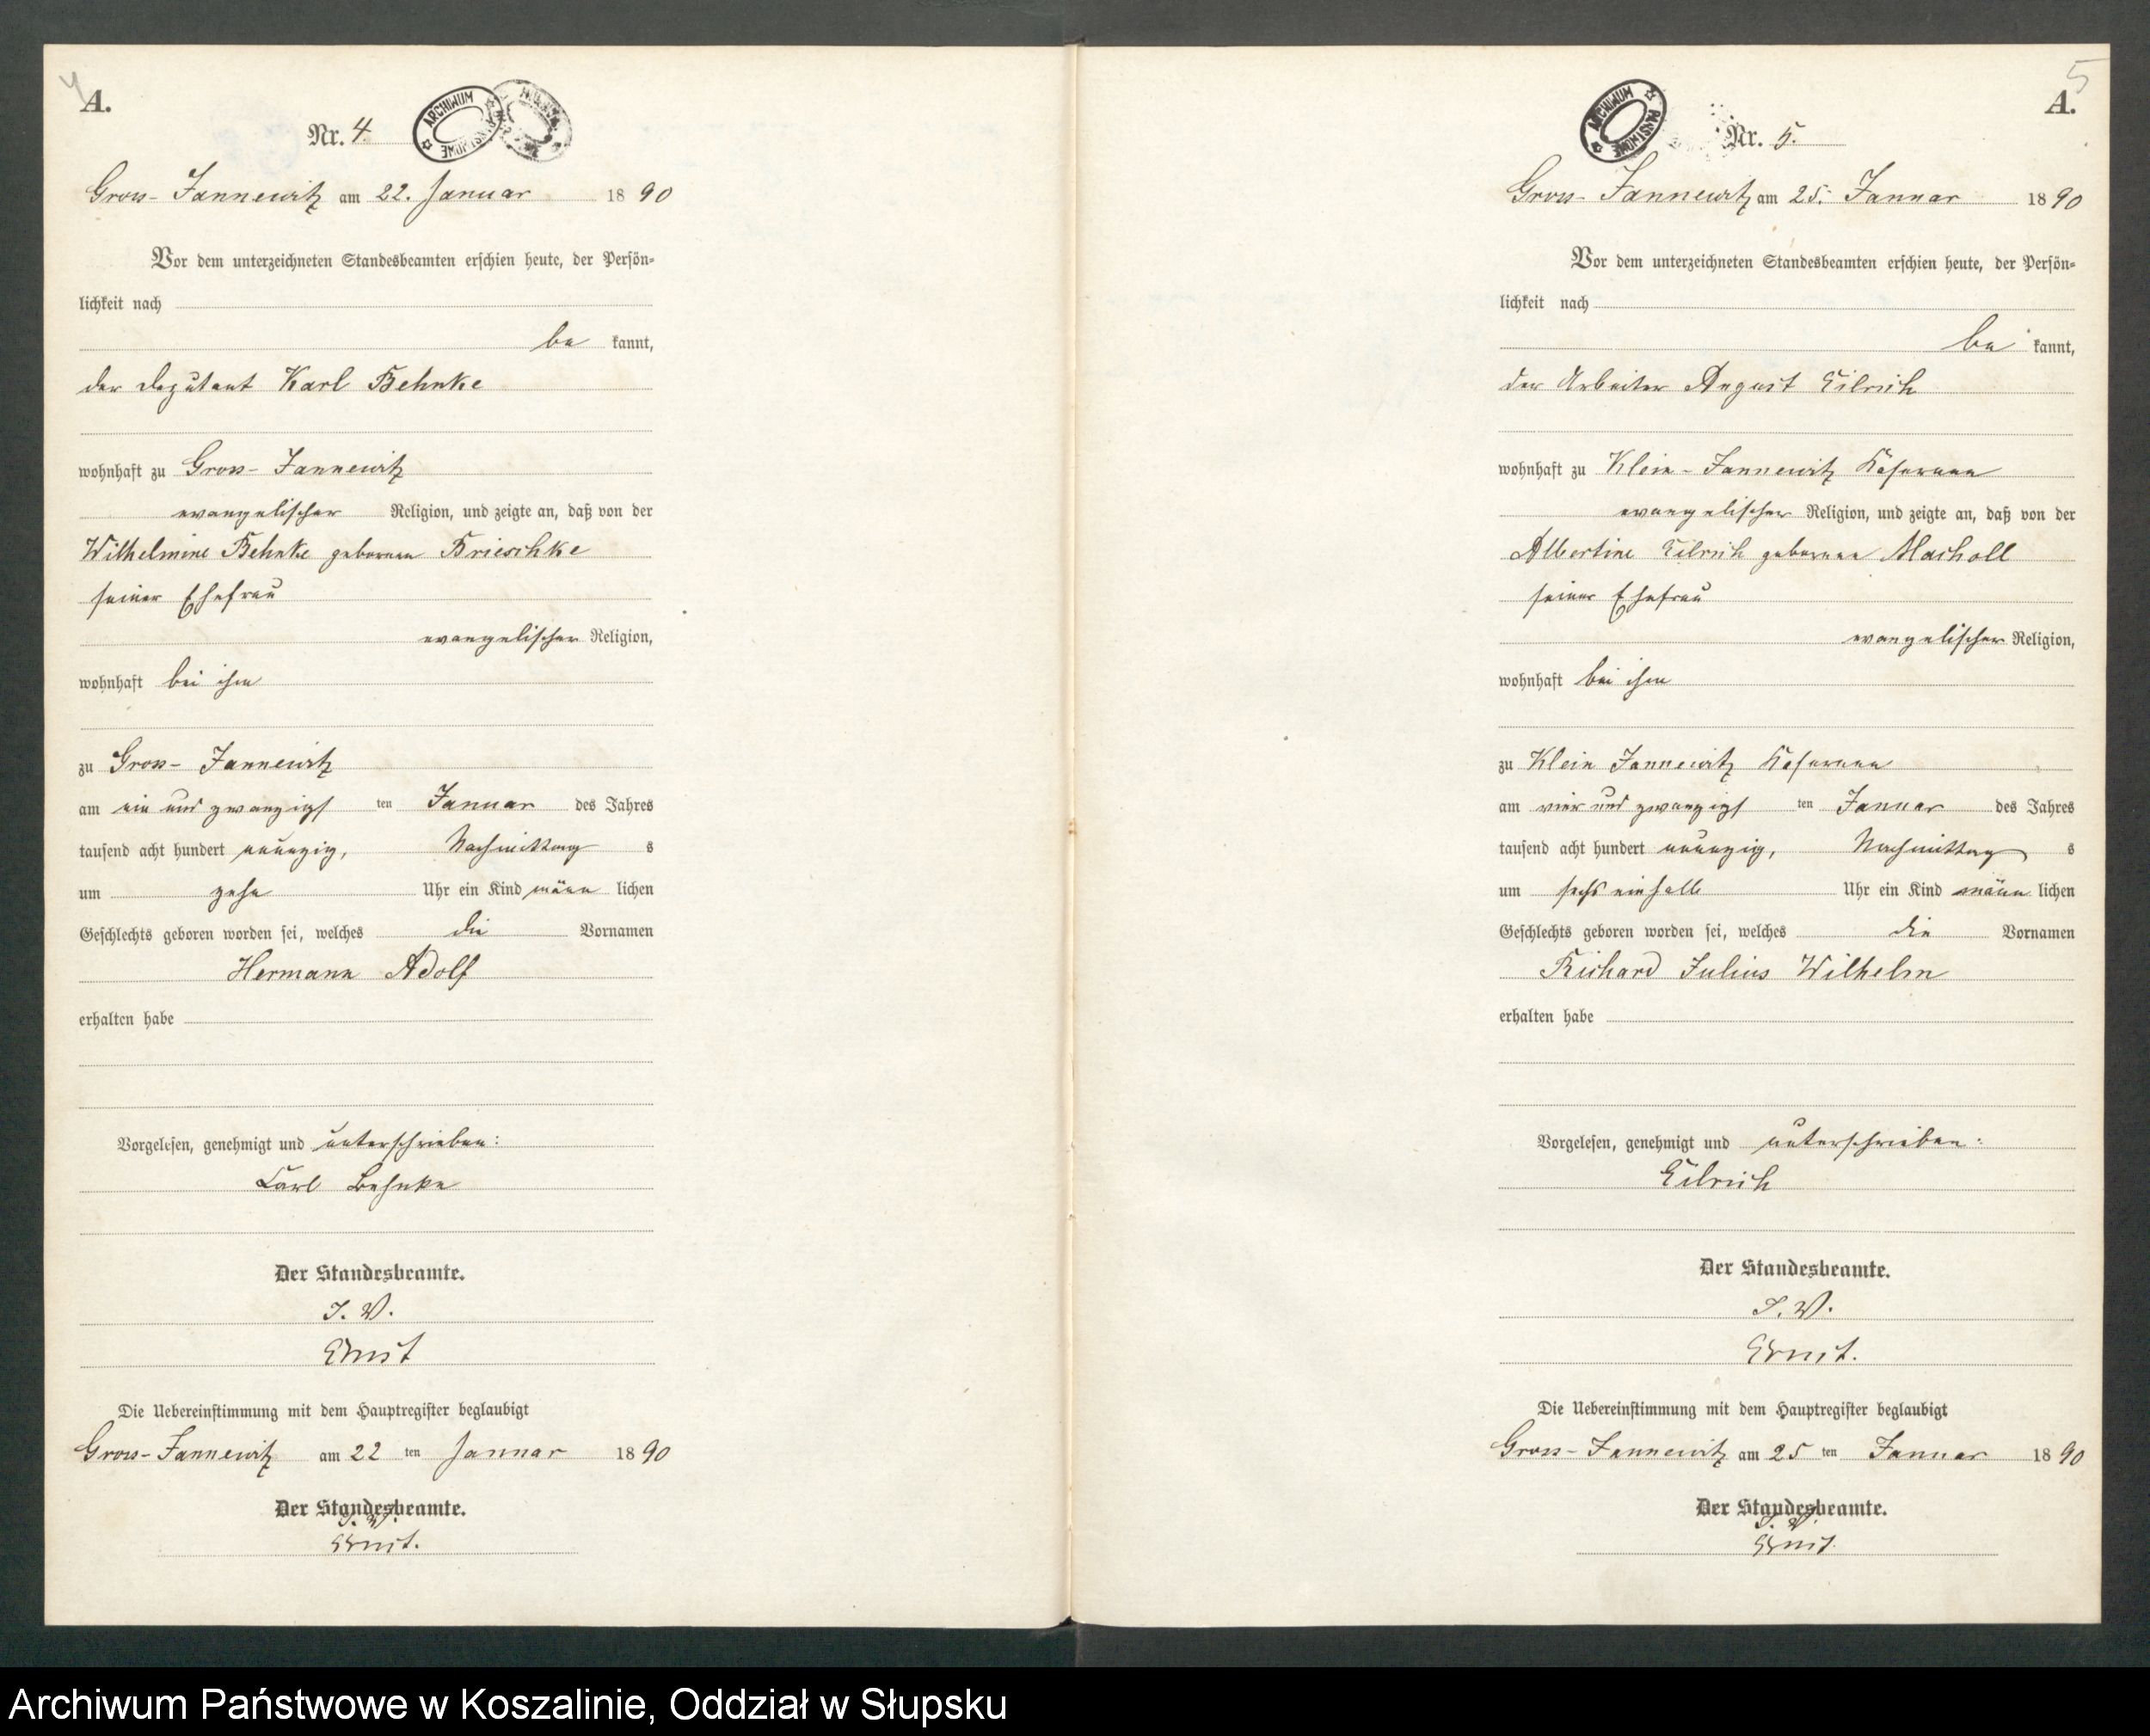 4
A.
Nr. 4.
ARCHIWUM PAŃSTWOWE
Gross-Jannewitz am 22. Januar 1890
Vor dem unterzeichneten Standesbeamten erschien heute, der Persön-
lichkeit nach
be kannt,
der Deputant Karl Behnke
wohnhaft zu Gross-Jannewitz
evangelischer Religion, und zeigte an, daß von der
Wilhelmine Behnke geborenen Brieschke
seiner Ehefrau
evangelischer Religion,
wohnhaft bei ihm
zu Gross-Jannewitz
am ein und zwanzigs ten Januar des Jahres
tausend acht hundert neunzig, Nachmittag s
um zehn Uhr ein Kind männ lichen
Geschlechts geboren worden sei, welches die Vornamen
Hermann Adolf
erhalten habe
Vorgelesen, genehmigt und unterschrieben:
Carl Behnke
Der Standesbeamte.
I. V.
Ernst
Die Uebereinstimmung mit dem Hauptregister beglaubigt
Gross-Jannewitz am 22 ten Januar 1890
Der Standesbeamte.
I. V.
Ernst.
5
A.
ARCHIWUM PAŃSTWOWE
Nr. 5.
Gross-Jannewitz am 25. Januar 1890
Vor dem unterzeichneten Standesbeamten erschien heute, der Persön-
lichkeit nach
be kannt,
der Arbeiter August Eilrich
wohnhaft zu Klein-Jannewitz Kaserne
evangelischer Religion, und zeigte an, daß von der
Albertine Eilrich geborenen Macholl
seiner Ehefrau
evangelischer Religion,
wohnhaft bei ihm
zu Klein Jannewitz Kaserne
am vier und zwanzigs ten Januar des Jahres
tausend acht hundert neunzig, Nachmittag s
um sechs einhalb Uhr ein Kind männ lichen
Geschlechts geboren worden sei, welches die Vornamen
Richard Julius Wilhelm
erhalten habe
Vorgelesen, genehmigt und unterschrieben:
Eilrich
Der Standesbeamte.
I. V.
Ernst.
Die Uebereinstimmung mit dem Hauptregister beglaubigt
Gross-Jannewitz am 25 ten Januar 1890
Der Standesbeamte.
I. V.
Ernst.
Archiwum Państwowe w Koszalinie, Oddział w Słupsku